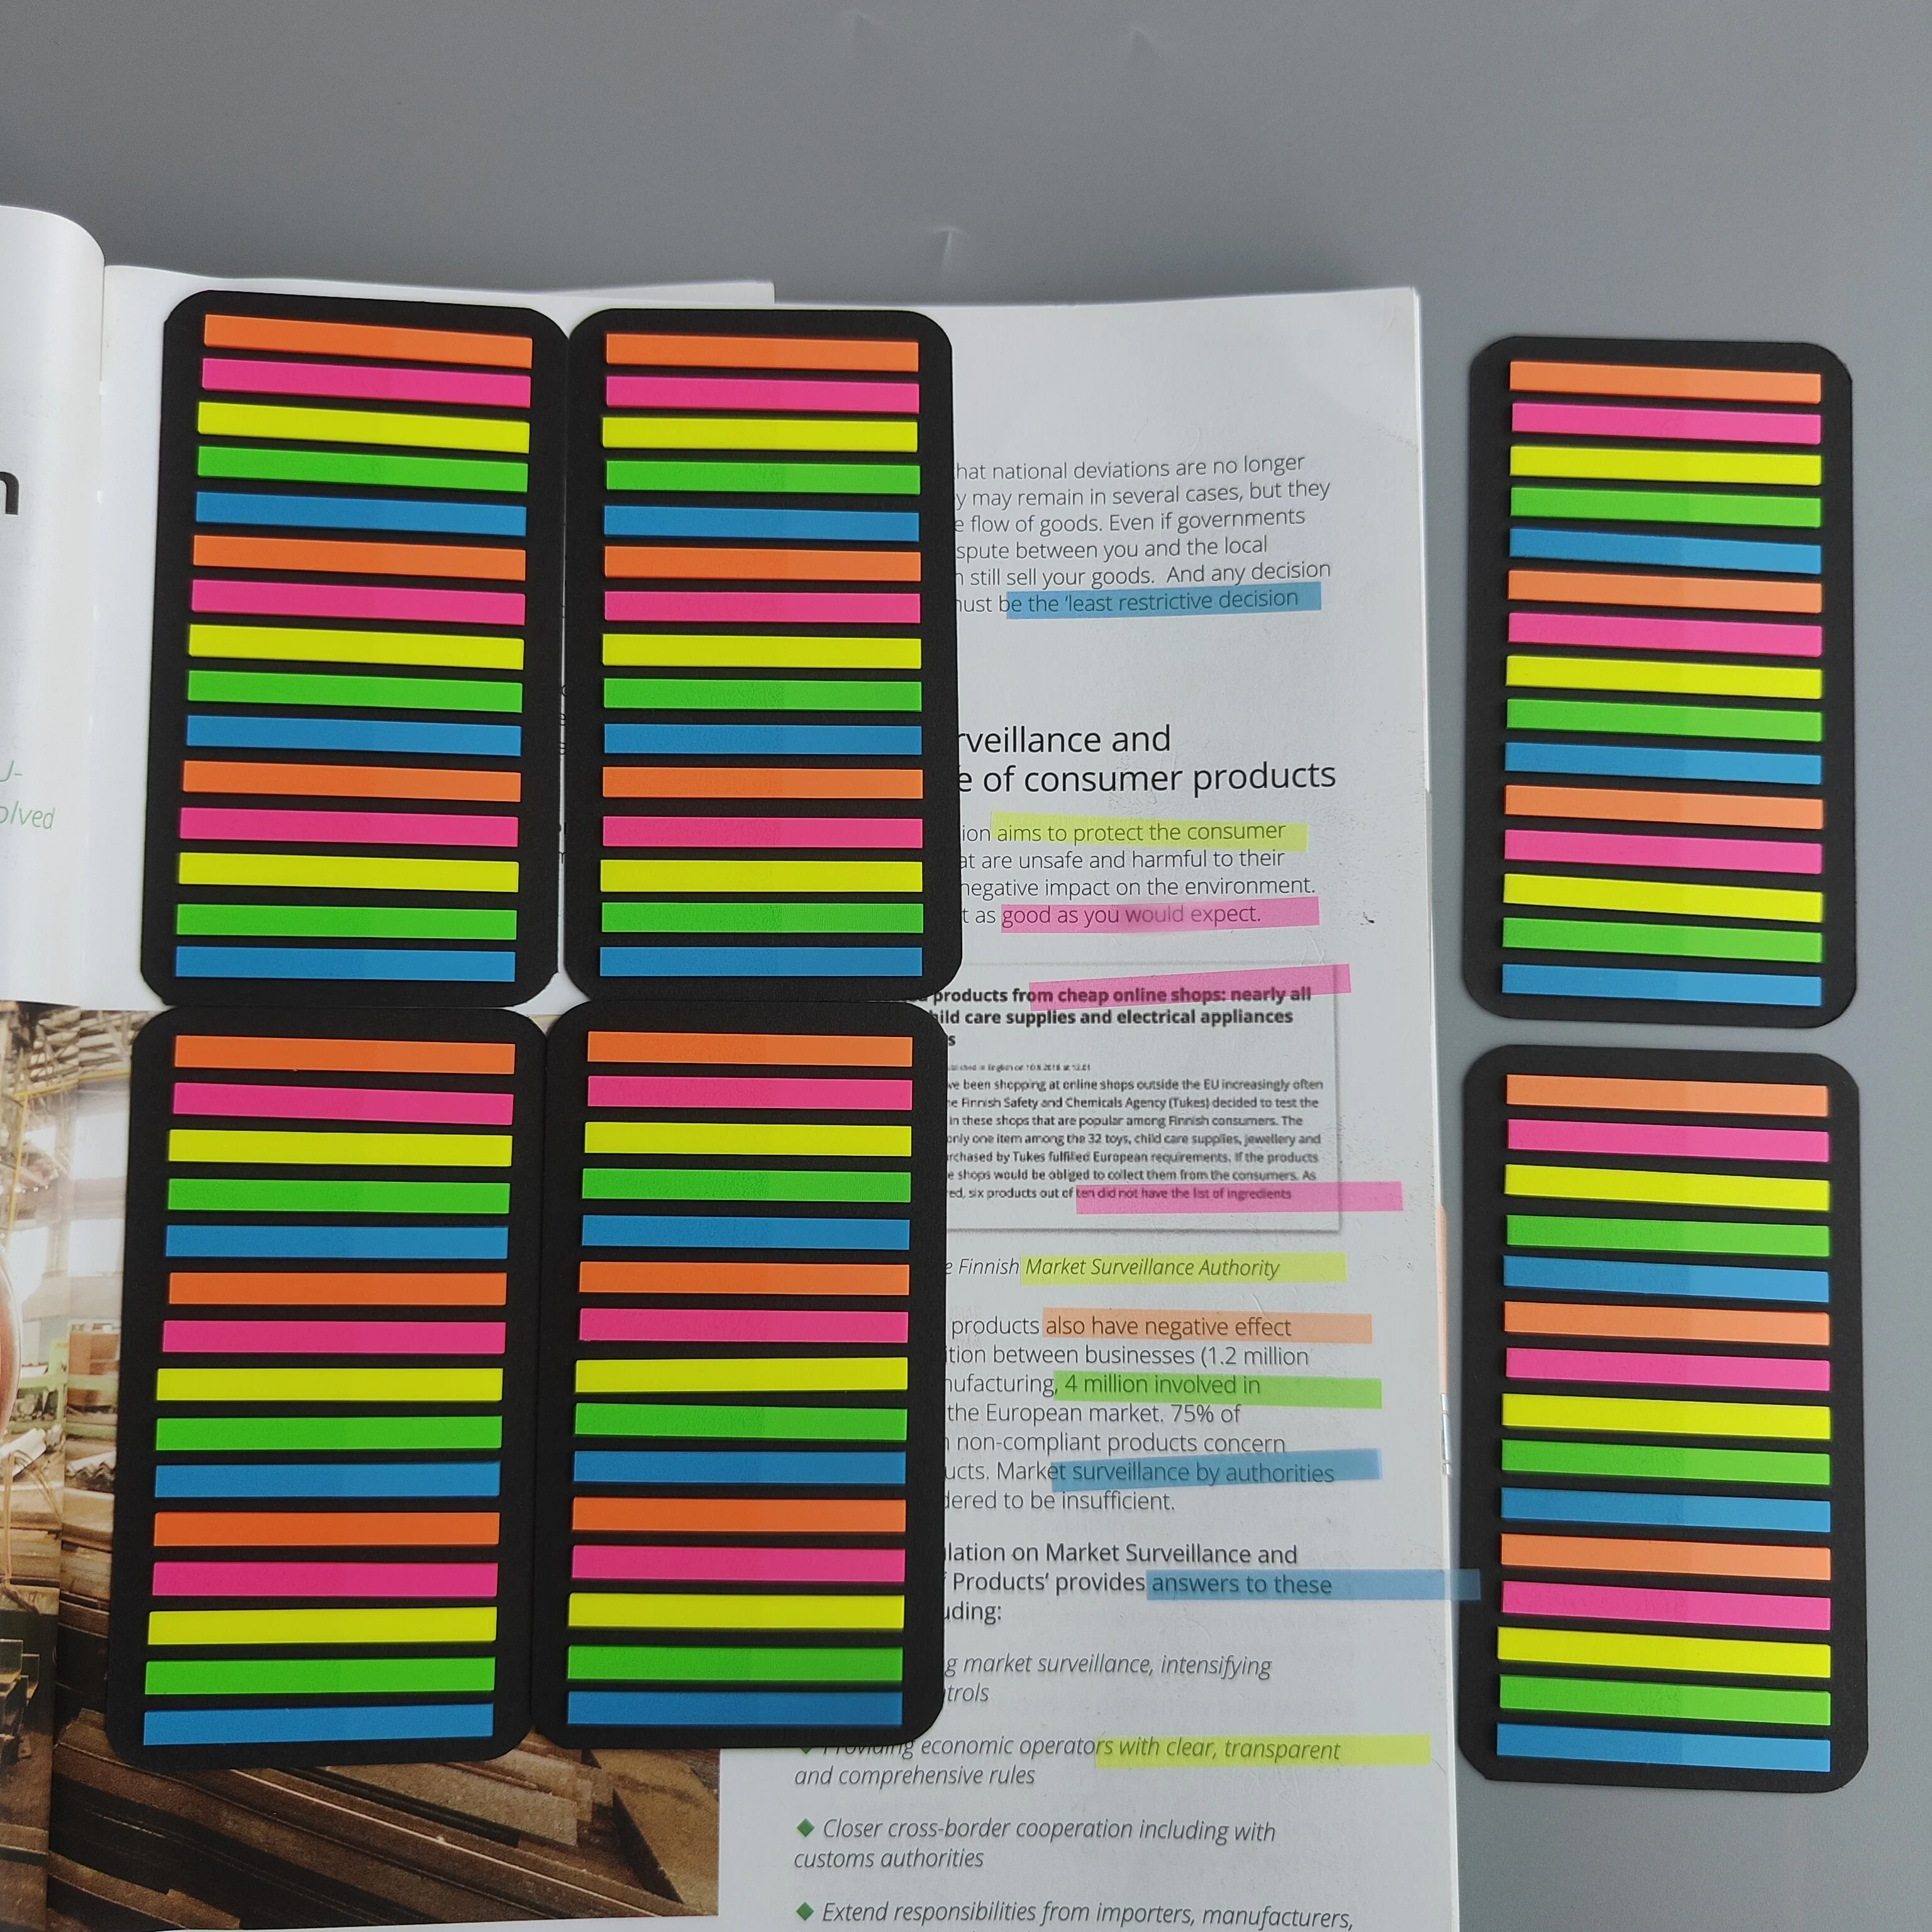 that national deviations are no longer
may remain in several cases, but they
flow of goods. Even if governments
between you and the local
still sell your goods. And any decision
must be the ‘least restrictive decision
and
of consumer products
aims to protect the consumer
are unsafe and harmful to their
negative impact on the environment.
as good as you would expect.
products from cheap online shops: nearly all
child care supplies and electrical appliances
been shopping at online shops outside the EU increasingly often
Finnish Safety and Chemicals Agency (Tukes) decided to test the
in these shops that are popular among Finnish consumers. The
only one item among the 32 toys, child care supplies, jewellery and
purchased by Tukes fulfilled European requirements. If the products
shops would be obliged to collect them from the consumers. As
six products out of ten did not have the list of ingredients
Finnish Market Surveillance Authority
products also have negative effect
between businesses (1.2 million
4 million involved in
the European market. 75% of
non-compliant products concern
Market surveillance by authorities
to be insufficient.
on Market Surveillance and
Products’ provides answers to these
market surveillance, intensifying
Providing economic operators with clear, transparent
and comprehensive rules
◆ Closer cross-border cooperation including with
customs authorities
◆ Extend responsibilities from importers, manufacturers,